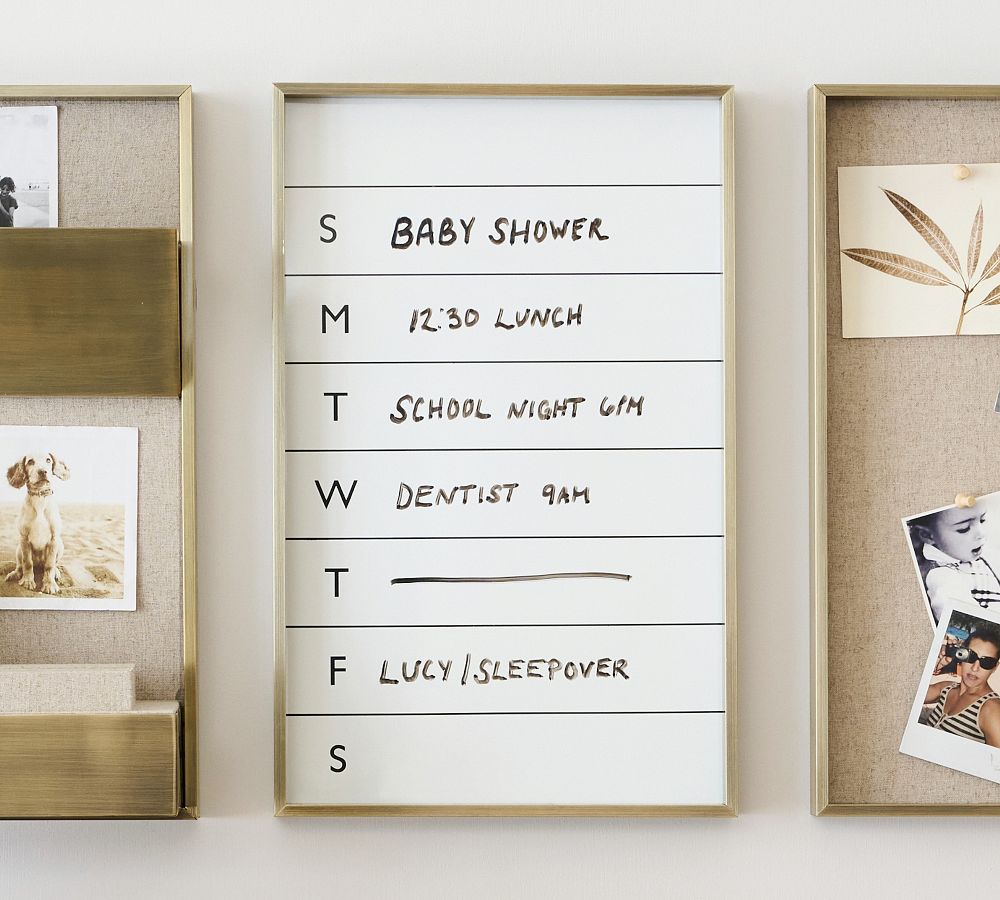 S BABY SHOWER
M 12:30 LUNCH
T SCHOOL NIGHT 6PM
W DENTIST 9AM
T
F LUCY/SLEEPOVER
S